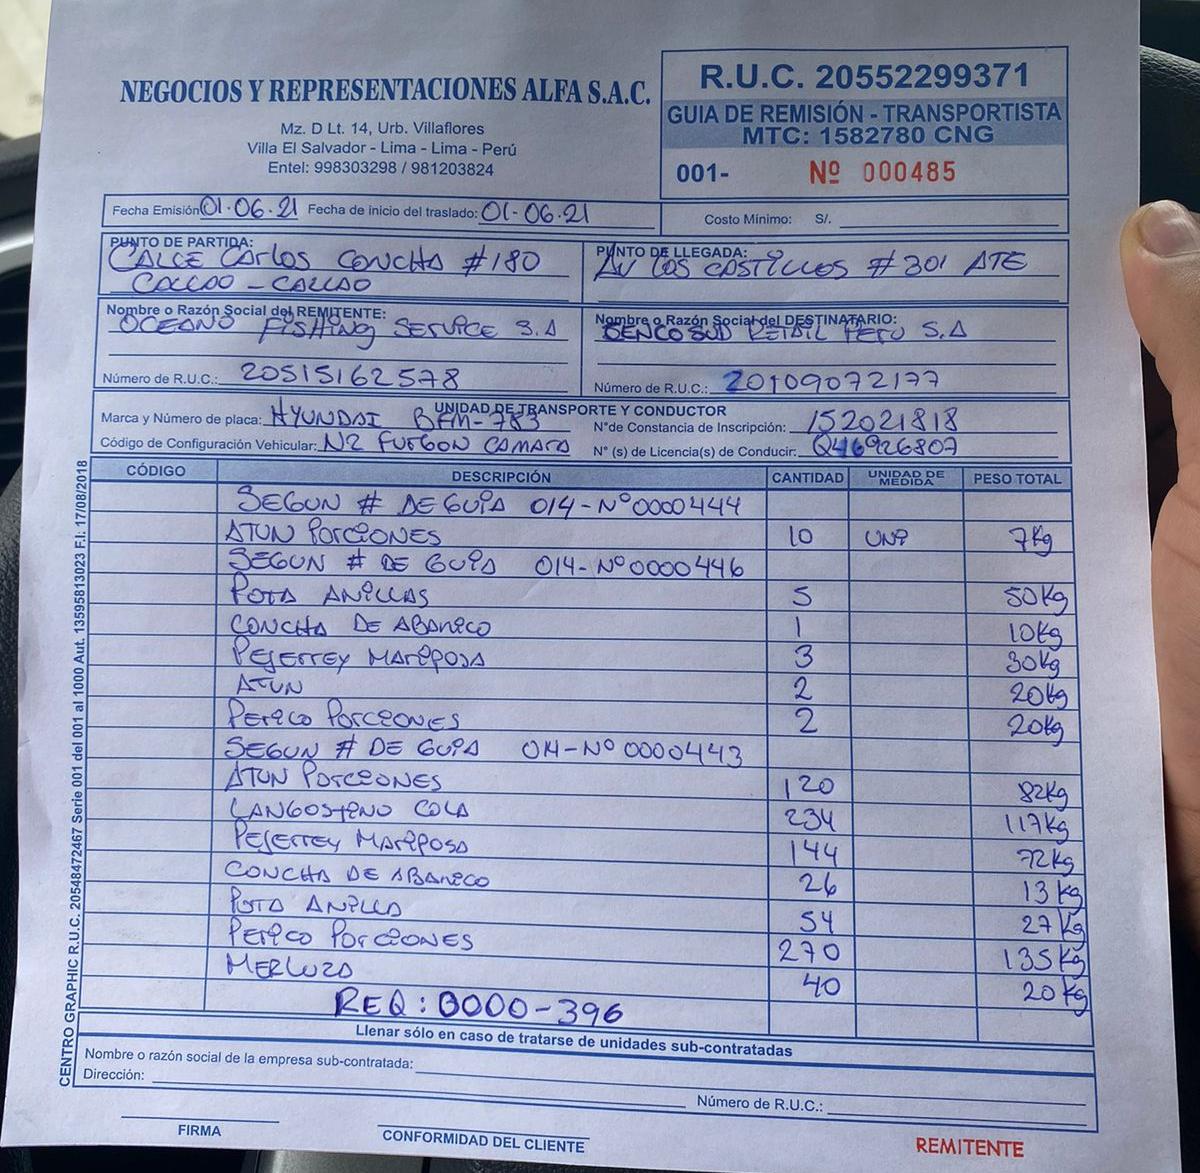 NEGOCIOS Y REPRESENTACIONES ALFA S.A.C.
Mz. D Lt. 14, Urb. Villaflores
Villa El Salvador - Lima - Lima - Perú
Entel: 998303298 / 981203824
R.U.C. 20552299371
GUIA DE REMISIÓN - TRANSPORTISTA
MTC: 1582780 CNG
001- Nº 000485
Fecha Emisión 01-06-21 Fecha de inicio del traslado: 01-06-21 Costo Mínimo: S/.
PUNTO DE PARTIDA:
CALLE CARLOS CONCHA #180
CALLAO - CALLAO
PUNTO DE LLEGADA:
AV LOS CASTILLOS #301 ATE
Nombre o Razón Social del REMITENTE:
OCEANO FISHING SERVICE S.A
Número de R.U.C.: 20515162578
Nombre o Razón Social del DESTINATARIO:
CENCOSUD RETAIL PERU S.A
Número de R.U.C.: 20109072177
UNIDAD DE TRANSPORTE Y CONDUCTOR
Marca y Número de placa: HYUNDAI BFM-783 N°de Constancia de Inscripción: 152021818
Código de Configuración Vehicular: N2 FURGON CAMARA N° (s) de Licencia(s) de Conducir: Q46926807
CÓDIGO DESCRIPCIÓN CANTIDAD UNIDAD DE MEDIDA PESO TOTAL
SEGUN # DE GUIA 014-Nº0000444
ATUN PORCIONES 10 UNI 7Kg
SEGUN # DE GUIA 014-Nº0000446
POTA ANILLAS 5 50Kg
CONCHA DE ABANICO 1 10Kg
PEJERREY MARIPOSA 3 30Kg
ATUN 2 20Kg
PERICO PORCIONES 2 20Kg
SEGUN # DE GUIA 014-Nº0000443
ATUN PORCIONES 120 82Kg
LANGOSTINO COLA 234 117Kg
PEJERREY MARIPOSA 144 72Kg
CONCHA DE ABANICO 26 13Kg
POTA ANILLA 54 27Kg
PERICO PORCIONES 270 135Kg
MERLUZA 40 20Kg
REQ: 0000-396
Llenar sólo en caso de tratarse de unidades sub-contratadas
Nombre o razón social de la empresa sub-contratada:
Dirección: Número de R.U.C.:
FIRMA
CONFORMIDAD DEL CLIENTE
REMITENTE
CENTRO GRAPHIC R.U.C. 20548472467 Serie 001 del 001 al 1000 Aut. 13595813023 F.I.: 17/08/2018